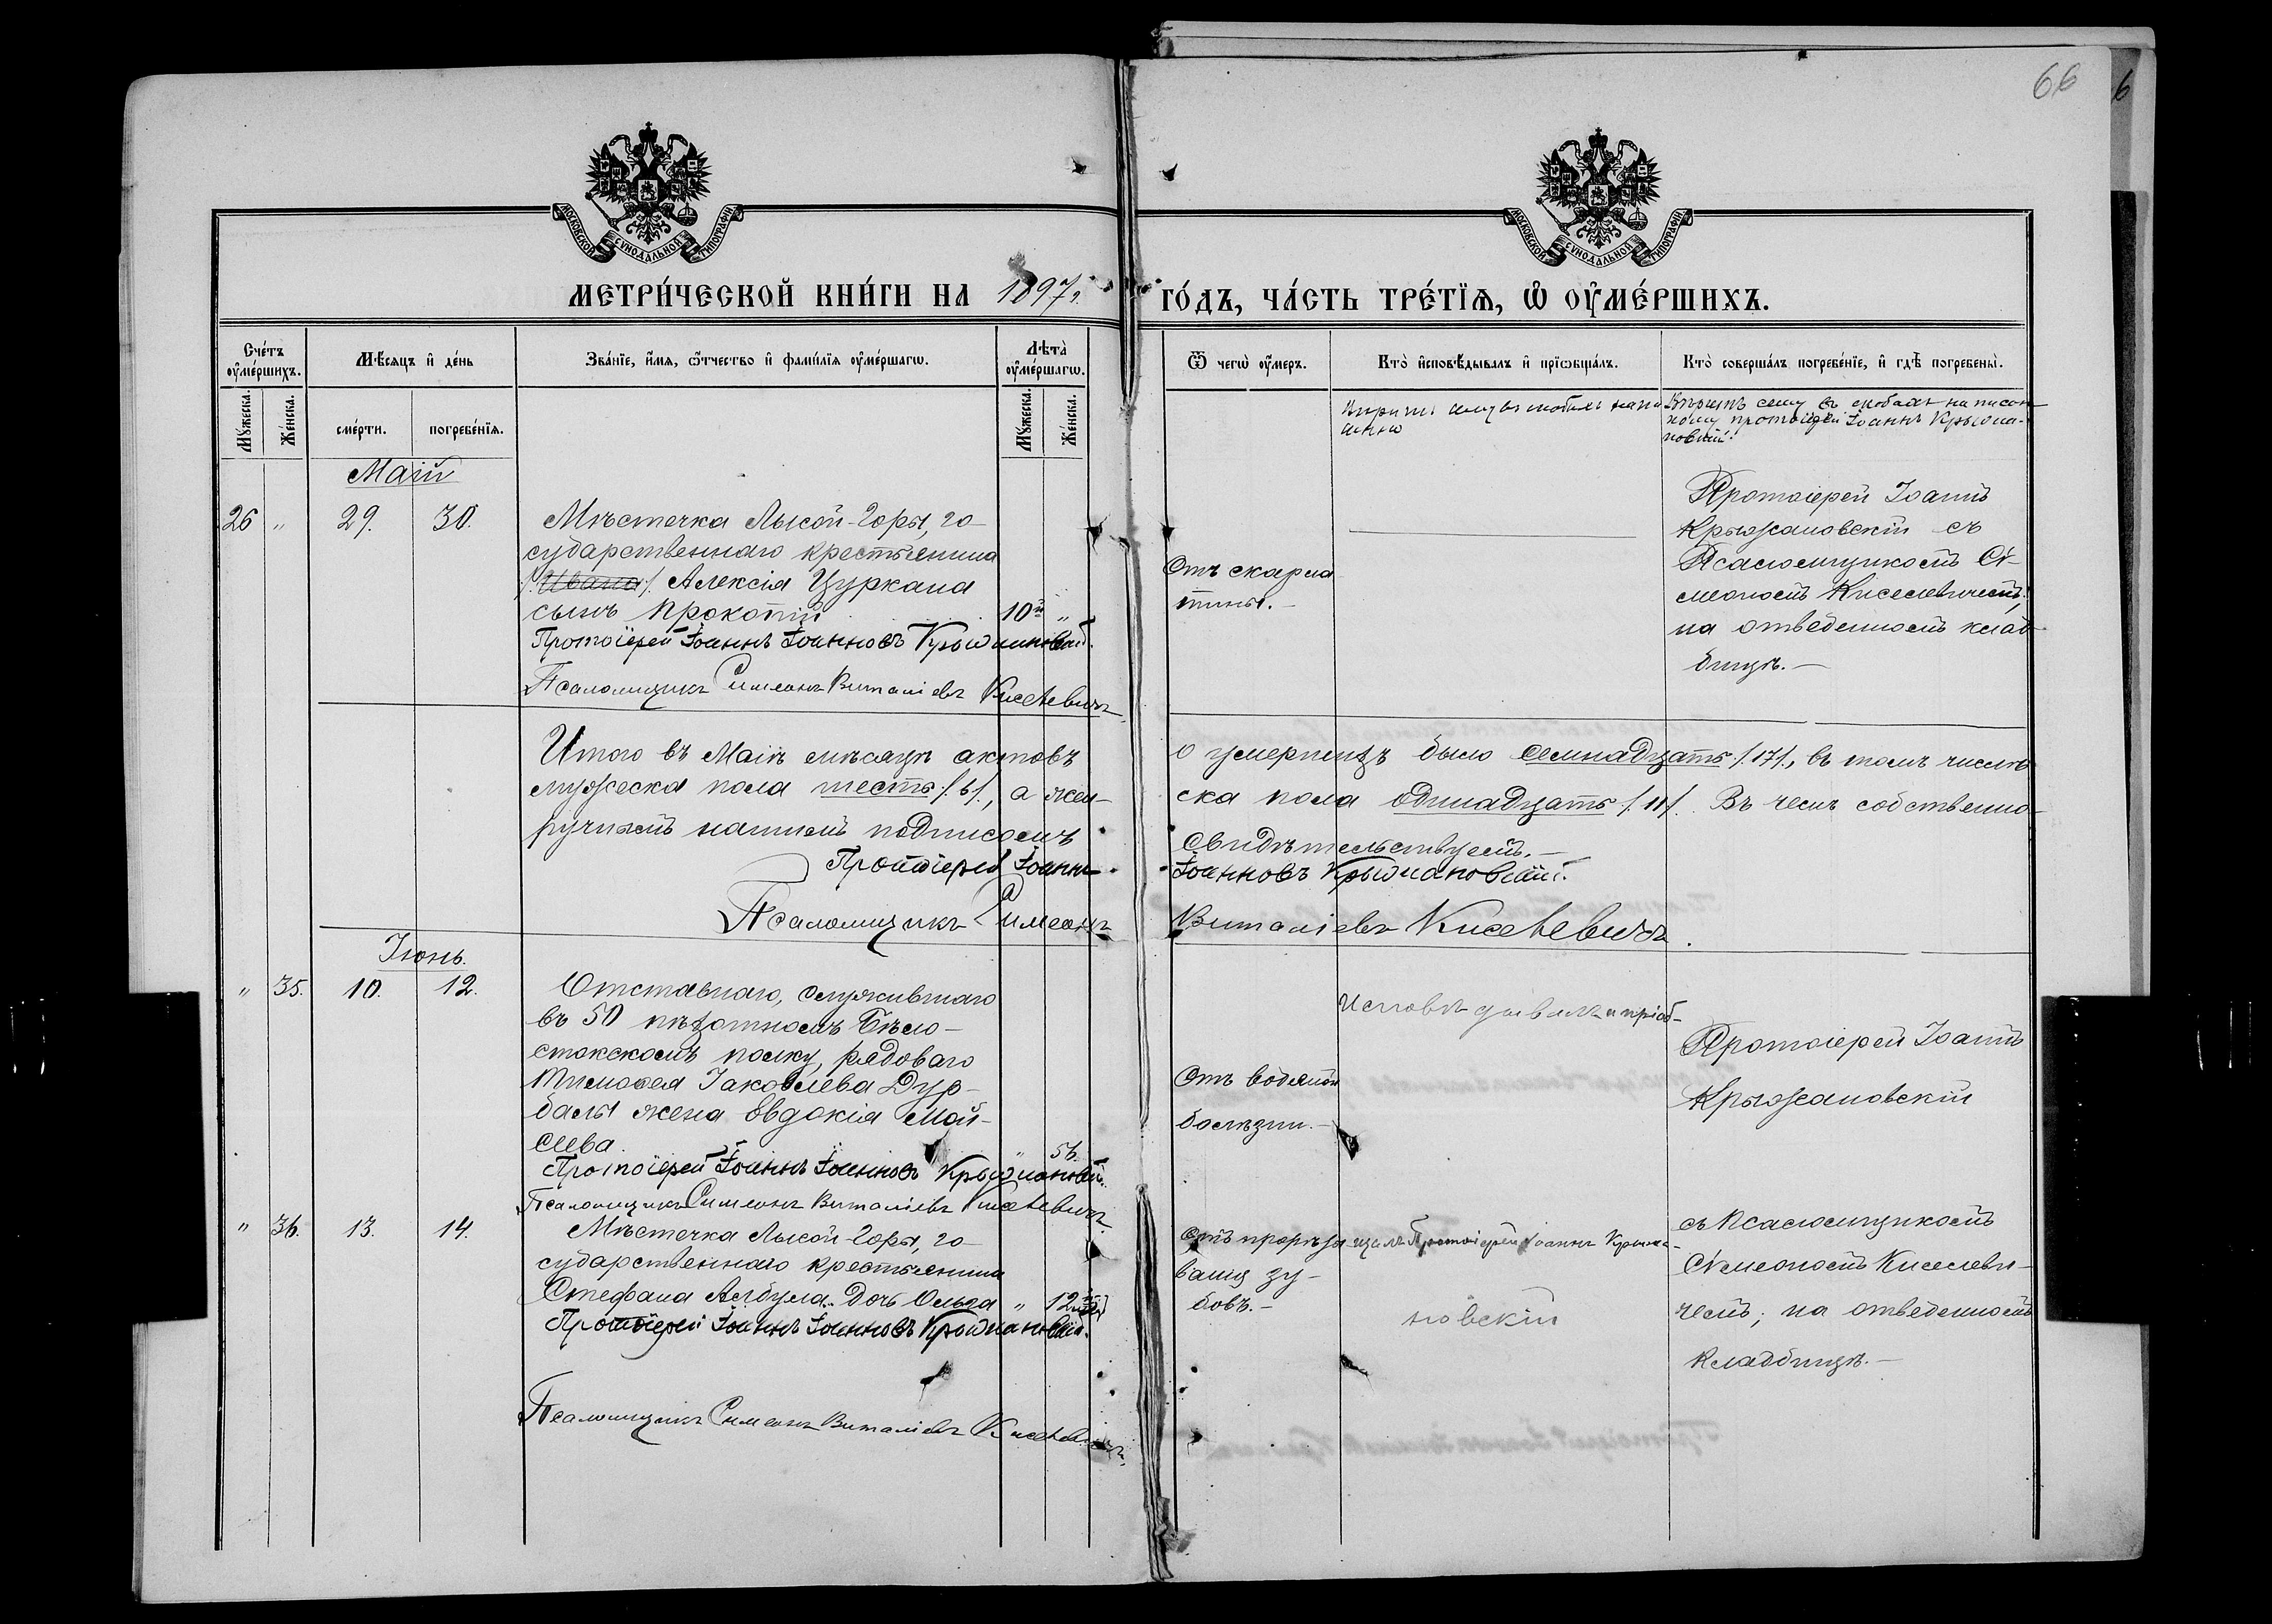 66
6
МОСКОВСКОЙ СѴНОДАЛЬНОЙ ТИПОГРАФІИ
МОСКОВСКОЙ СѴНОДАЛЬНОЙ ТИПОГРАФІИ
МЕТРИ́ЧЕСКОЙ КНИ́ГИ НА 1897 г.
ГО́ДЪ, ЧА́СТЬ ТРЕ́ТЇѦ, Ѡ҆ ОУ҆МЕ́РШИХЪ.
Сче́тъ оу҆ме́ршихъ.
Мѣ́сяцъ и҆ де́нь
Зва́нїе, и҆́мя, ѻ҆́тчество и҆ фами́лїя оу҆ме́ршагѡ.
Лѣта̀ оу҆ме́ршагѡ.
Ѿ чегѡ̀ оу҆́меръ.
Кто̀ и҆сповѣ́дывалъ и҆ прїѡбща́лъ.
Кто̀ соверша́лъ погребе́нїе, и҆ гдѣ̀ погребены̀.
Му́жеска.
Же́нска.
сме́рти.
погребе́нїя.
Му́жеска.
Же́нска.
Къ сему въ скобахъ написан-
ному протоіерей Іоаннъ Крыжа-
новскій.
Маій
26 „ 29. 30.
Мѣстечка Лысой-Горы, го-
сударственнаго крестьянина
/:Ивана:/ Алексія Цуркана
сынъ Прокопій 10 „
Протоіерей Іоаннъ Іоанновъ Крыжановскій.
Псаломщикъ Симеонъ Виталіевъ Киселевичъ
Отъ скарла
тины.-
Протоіерей Іоаннъ
Крыжановскій съ
Псаломщикомъ Си-
меономъ Киселевичемъ;
на отведенномъ клад-
бищѣ.-
Итого въ Маіѣ мѣсяцѣ актовъ
о умершихъ было семнадцать /:17/., въ томъ числѣ
мужеска пола шесть /:6/., а жен-
ска пола одинадцать /:11/. Въ чемъ собственно-
ручнымъ нашимъ подписомъ
свидѣтельствуемъ.-
Протоіерей Іоаннъ
Іоанновъ Крыжановскій.
Псаломщикъ Симеонъ
Виталіевъ Киселевичъ.
Іюнь.
„ 35. 10. 12.
Отставнаго, служившаго
въ 50 пѣхотномъ Бѣло-
стокскомъ полку, рядоваго
Тимофея Іаковлева Дур-
балы жена Евдокія Мой-
сеева. „ 56.
Протоіерей Іоаннъ Іоанновъ Крыжановскій.
Псаломщикъ Симеонъ Виталіевъ Киселевичъ
Отъ водяной
болѣзни.-
Исповѣдывалъ и пріоб-
Протоіерей Іоаннъ
Крыжановскій
„ 36. 13. 14.
Мѣстечка Лысой-Горы, го-
сударственнаго крестьянина
Стефана Албула дочь Ольга „ 12
Протоіерей Іоаннъ Іоанновъ Крыжановскій.
Псаломщикъ Симеонъ Виталіевъ Киселевичъ.
Отъ прорѣзы
ванія зу-
бовъ.-
щалъ Протоіерей Іоаннъ Крыжа-
новскій
съ Псаломщикомъ
Симеономъ Киселеви-
чемъ; на отведенномъ
кладбищѣ.-